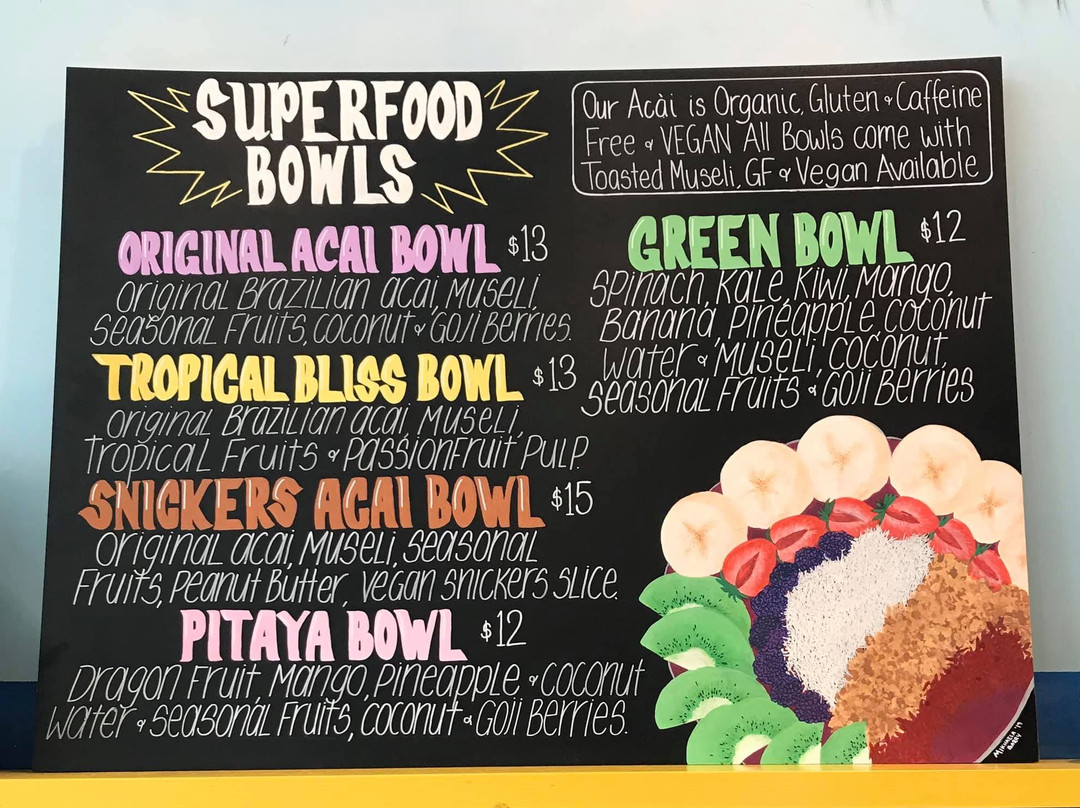 SUPERFOOD
BOWLS
Our Acài is Organic, Gluten & Caffeine
Free & VEGAN All Bowls come with
Toasted Museli, GF & Vegan Available
ORIGINAL ACAI BOWL $13
Original Brazilian acai, Museli,
Seasonal Fruits, coconut & Goji Berries.
TROPICAL BLISS BOWL $13
Original Brazilian acai, Museli,
Tropical Fruits & Passionfruit Pulp.
SNICKERS ACAI BOWL $15
Original acai, Museli, Seasonal
Fruits, Peanut Butter, Vegan Snickers Slice.
PITAYA BOWL $12
Dragon Fruit, Mango, Pineapple, & coconut
Water & Seasonal Fruits, coconut & Goji Berries.
GREEN BOWL $12
Spinach, Kale, Kiwi, Mango,
Banana, Pineapple, coconut
Water & Museli, coconut,
Seasonal Fruits & Goji Berries